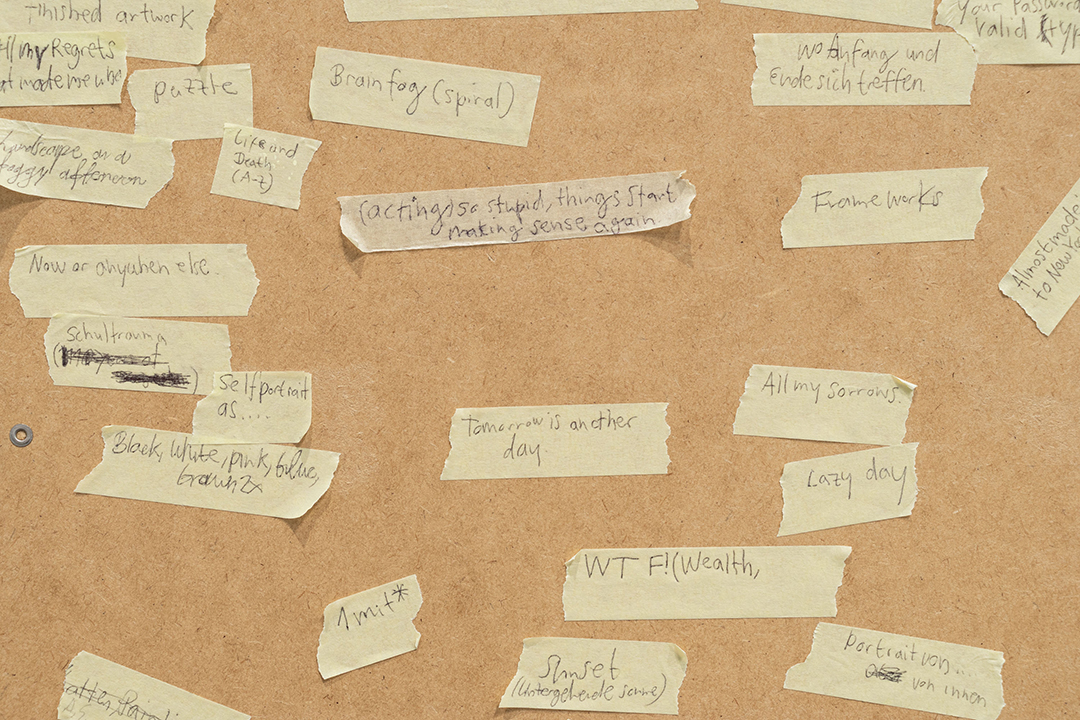 finished artwork
All my Regrets
at made me who
puzzle
Brain fog (spiral)
wo Anfang und
Ende sich treffen
your Password
valid
Landscape, on a
foggy afternoon
Life and
Death
(A-Z)
(acting) so stupid, things start
making sense again
Frame works
Almost made
to New
Now or anywhen else.
Schultrauma
Selfportrait
as....
Black, white, pink, blue,
brown 2x
Tomorrow is another
day.
All my sorrows.
Lazy day
WTF! (Wealth,
1 mit*
Sunset
(Untergehende sonne)
Portrait von...
von innen